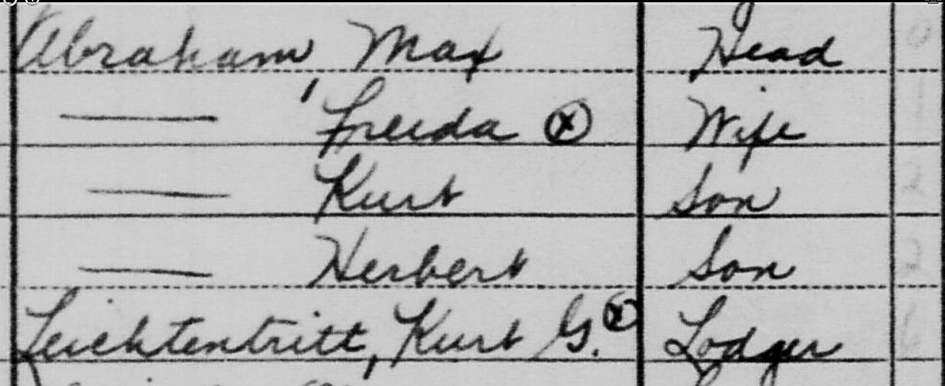 Abraham, Max Head 0
—— Freida ⓧ Wife 1
—— Kurt Son 2
—— Herbert Son 2
Leichtentritt, Kurt G. ⓧ Lodger 6